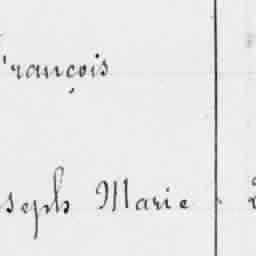 François
seph Marie